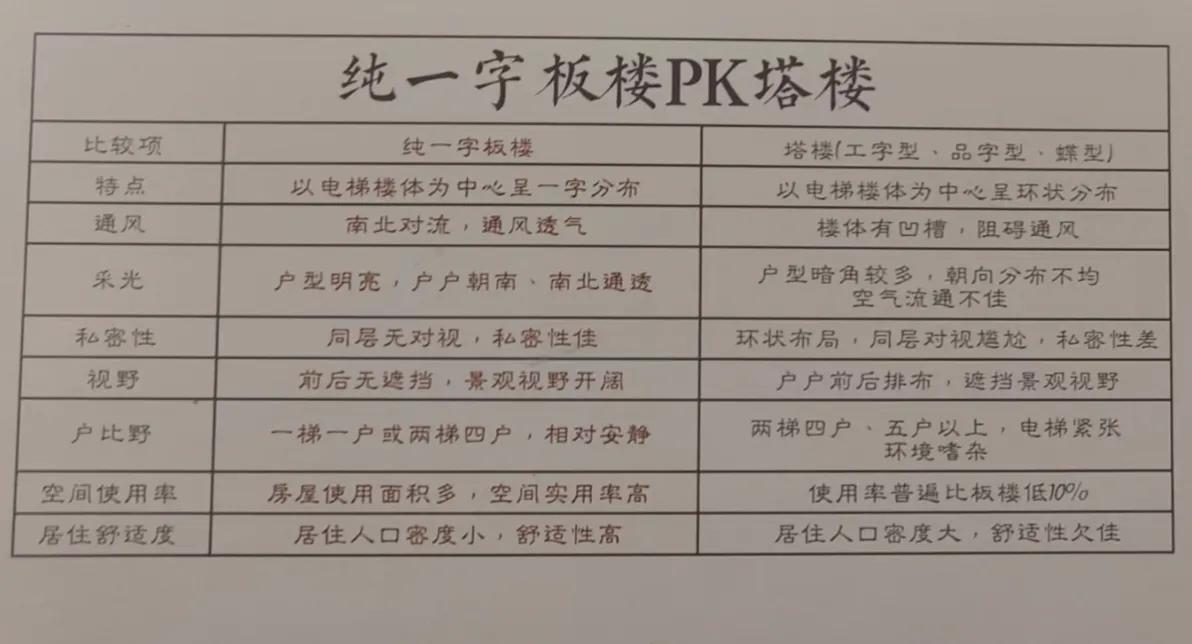 纯一字板楼PK塔楼
比较项 纯一字板楼 塔楼(工字型、品字型、蝶型)
特点 以电梯楼体为中心呈一字分布 以电梯楼体为中心呈环状分布
通风 南北对流，通风透气 楼体有凹槽，阻碍通风
采光 户型明亮，户户朝南、南北通透 户型暗角较多，朝向分布不均
空气流通不佳
私密性 同层无对视，私密性佳 环状布局，同层对视尴尬，私密性差
视野 前后无遮挡，景观视野开阔 户户前后排布，遮挡景观视野
户比野 一梯一户或两梯四户，相对安静 两梯四户、五户以上，电梯紧张
环境嗜杂
空间使用率 房屋使用面积多，空间实用率高 使用率普遍比板楼低10%
居住舒适度 居住人口密度小，舒适性高 居住人口密度大，舒适性欠佳